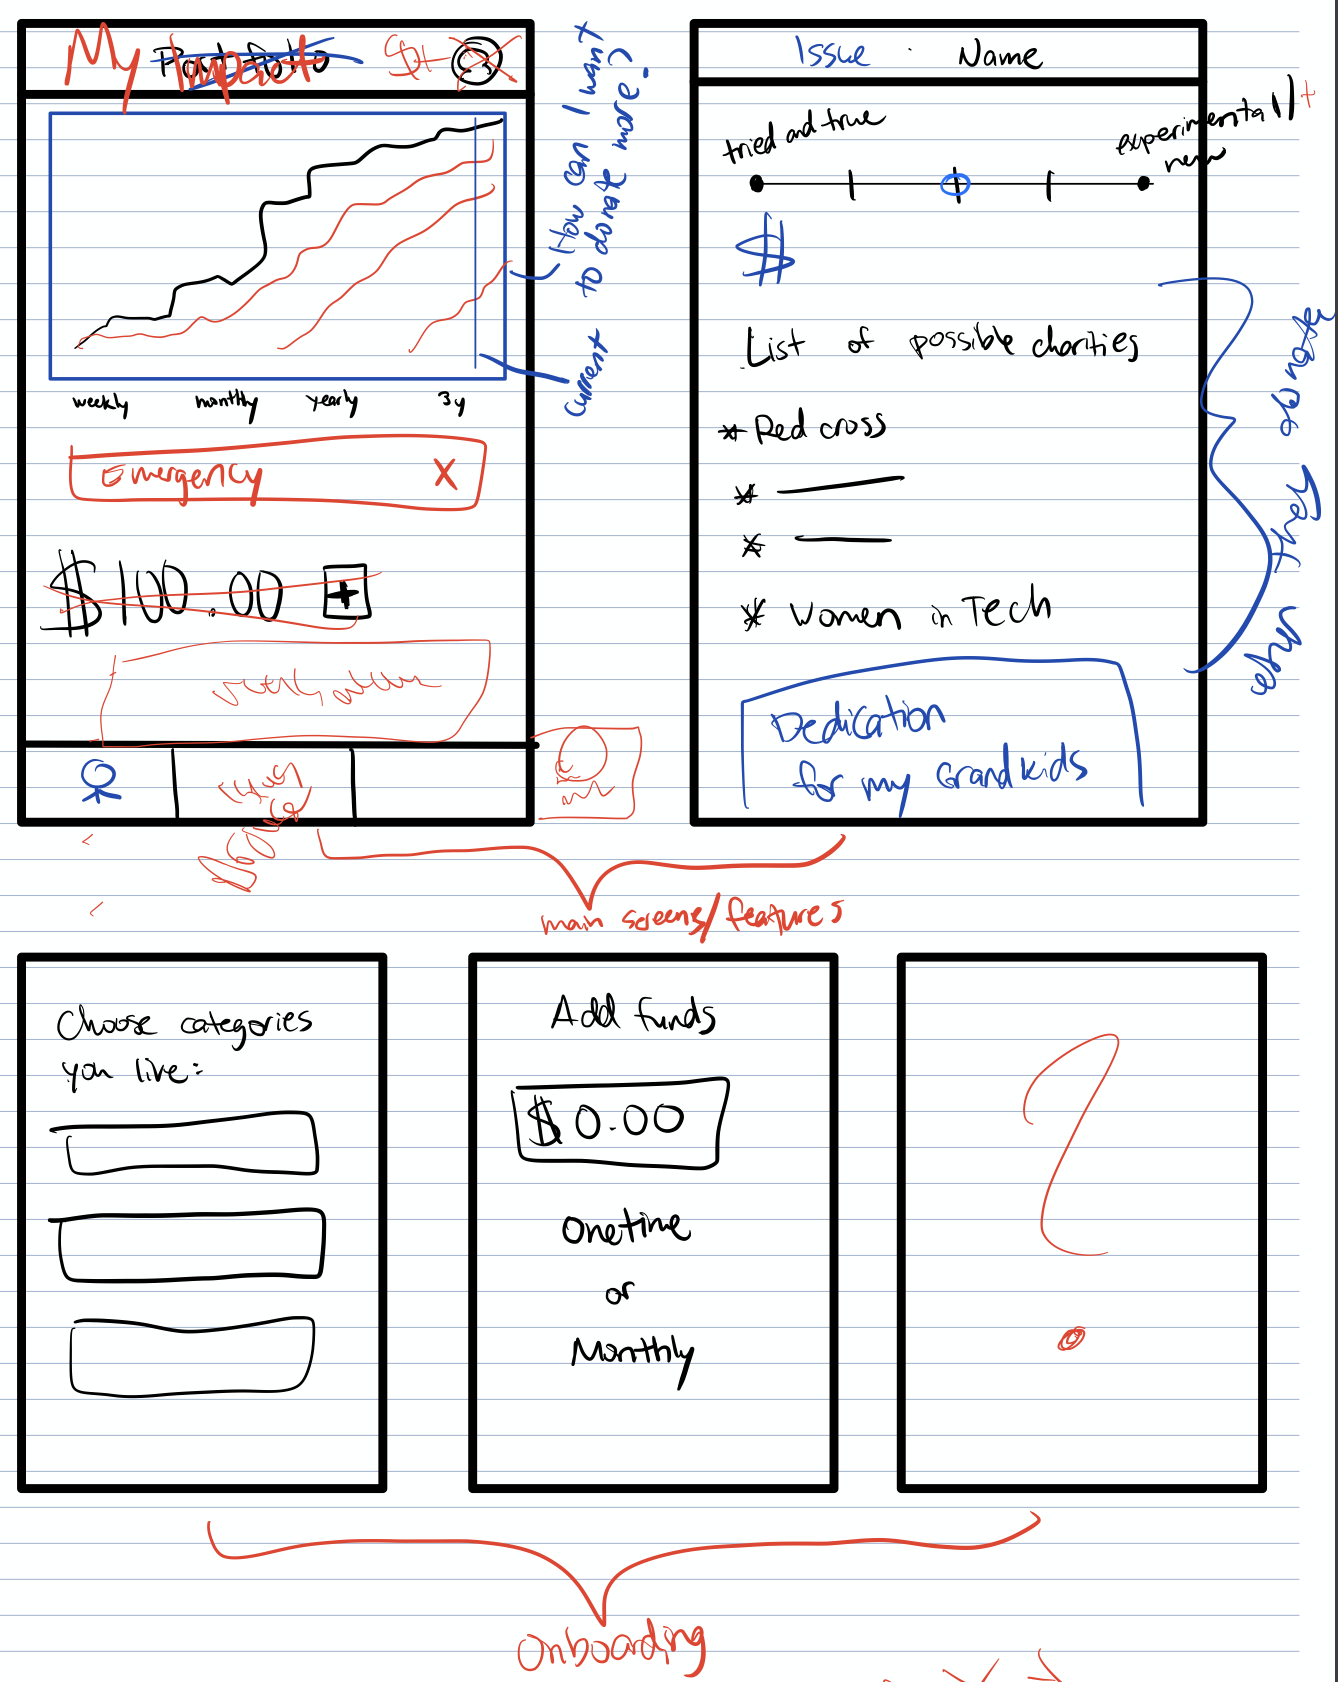 My Impact
Portfolio
$+
How can I want
to donate more?
current
weekly monthly yearly 3y
Emergency X
$100.00 +
Issue Name
tried and true
experimental // +
new
$
List of possible charities
* Red cross
*
*
* Women in Tech
Dedication
for my Grandkids
main screens/features
Choose categories
you like:
Add funds
$0.00
Onetime
or
Monthly
?
Onboarding